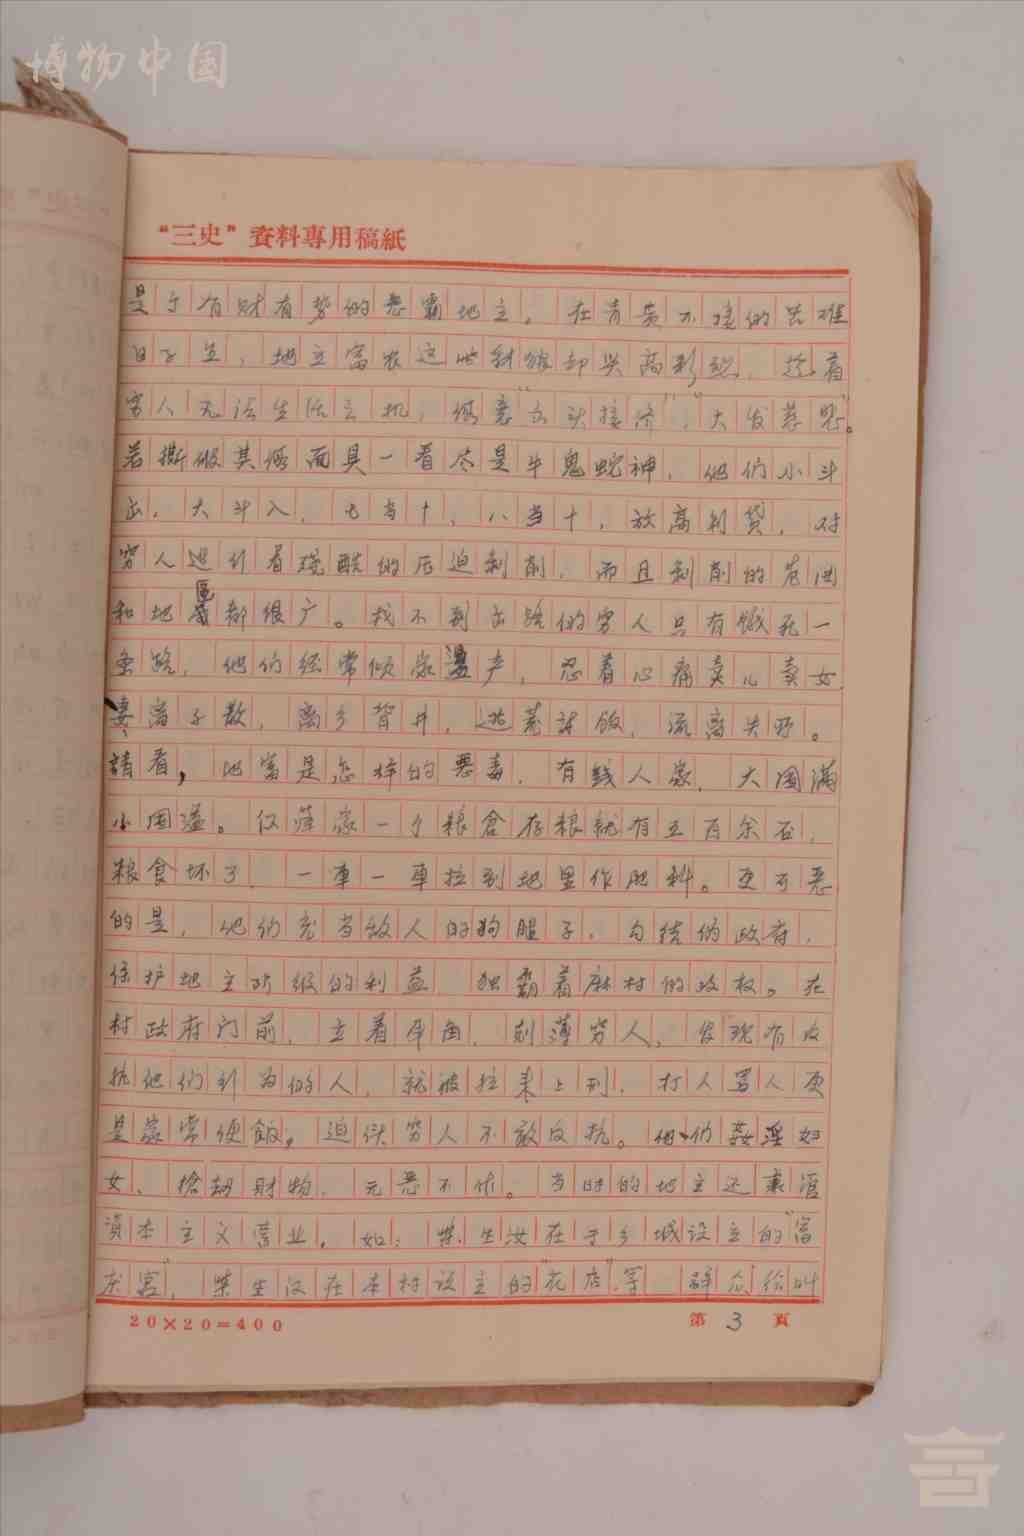 博物中国
“三史”資料專用稿紙
是个有财有势的恶霸地主。在青黄不接的苦难
日子里，地主富农这些豺狼却兴高彩烈，趁着
穷人无法生活之机，假意“出头接济”，“大发慈悲”。
若撕破其假面具一看尽是牛鬼蛇神，他们小斗
出，大斗入，七当十，八当十，放高利贷，对
穷人进行着残酷的压迫剥削，而且剥削的范围
和地區都很广。找不到出路的穷人只有饿死一
条路，他们经常倾家盪产，忍着心痛卖儿卖女，
妻离子散，离乡背井，逃荒討飯，流离失所。
請看，地富是怎样的恶毒，有钱人家，大囤滿
小囤溢。仅 家一个粮倉存粮就有五百余石，
粮食坏了，一車一車拉到地里作肥料。更可恶
的是，他们充当敌人的狗腿子，勾结伪政府，
保护地主阶级的利益，独霸着 村的政权。在
村政府门前，立着 角，刻薄穷人，发现有反
抗他们行为的人，就被拉来上刑，打人罵人更
是家常便飯，迫使穷人不敢反抗。他们姦淫妇
女、搶劫財物，元恶不作。当时的地主还 
資本主义营业，如： 生 在 乡城设立的“富
 ”， 生 在本村设立的“花店”等 群众给叫
20×20=400
第 3 頁